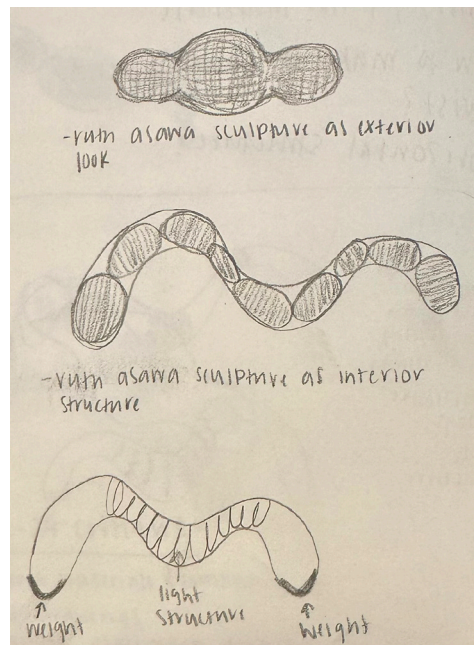 -ruth asawa sculpture as exterior
look
-ruth asawa sculpture as interior
structure
light
structure
weight
weight